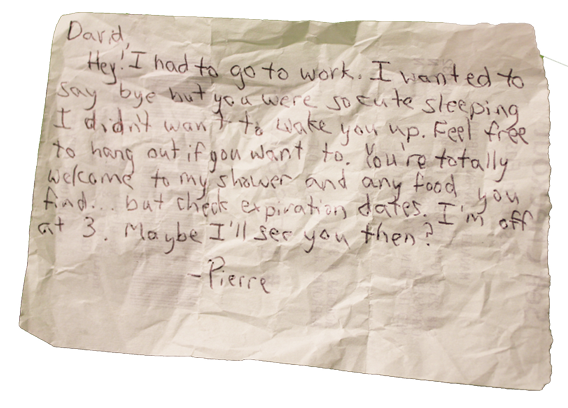 David,
Hey! I had to go to work. I wanted to
say bye but you were so cute sleeping
I didn't want to wake you up. Feel free
to hang out if you want to. You're totally
welcome to my shower and any food you
find... but check expiration dates. I'm off
at 3. Maybe I'll see you then?
-Pierre